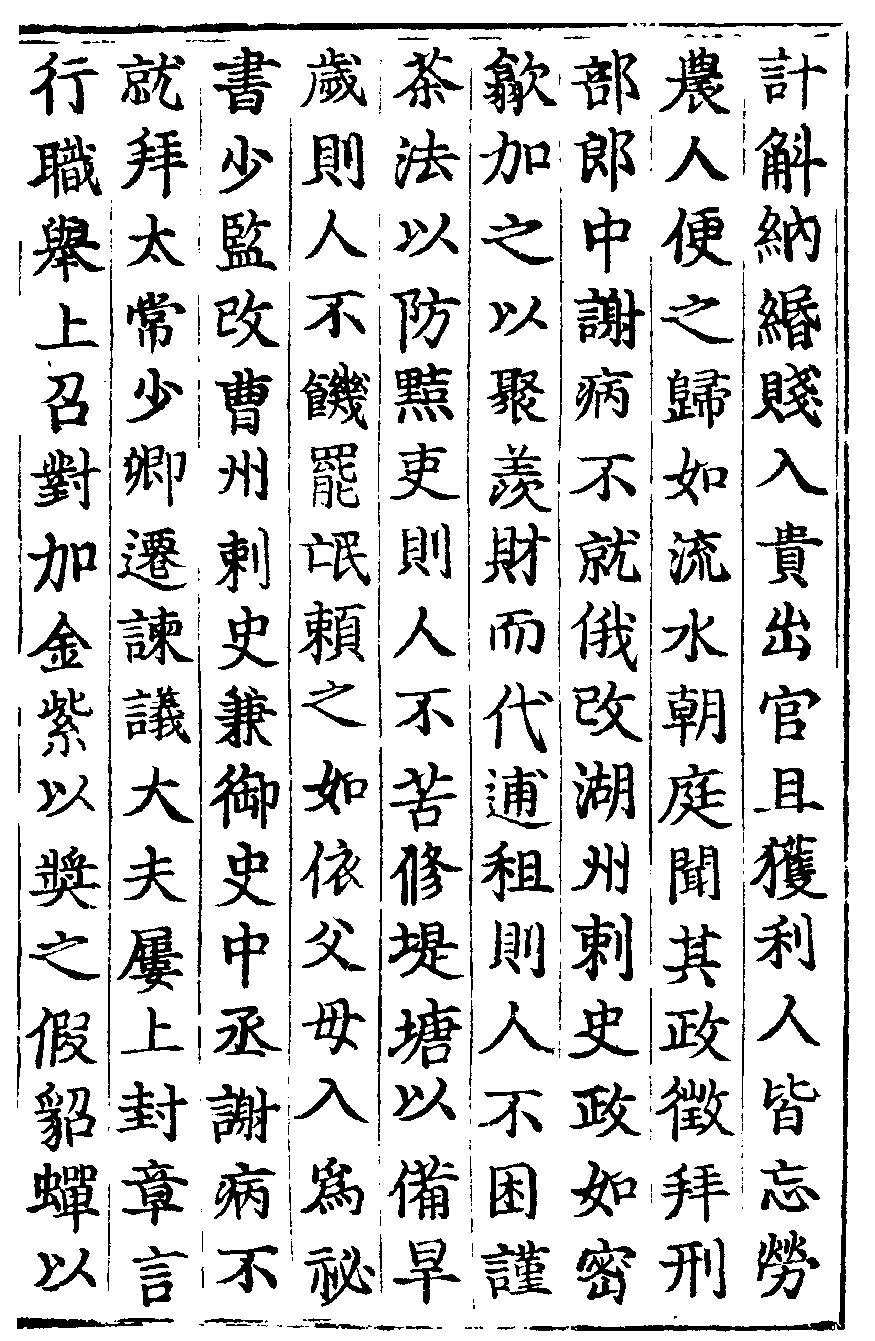 計斛納緡賤入貴出官且獲利人皆忘勞
農人便之歸如流水朝庭聞其政徵拜刑
部郎中謝病不就俄改湖州刺史政如密
歙加之以聚羨財而代逋租則人不困謹
茶法以防黠吏則人不苦修堤塘以備旱
歲則人不饑罷氓賴之如依父母入爲祕
書少監改曹州刺史兼御史中丞謝病不
就拜太常少卿遷諫議大夫屢上封章言
行職舉上召對加金紫以奬之假貂蟬以